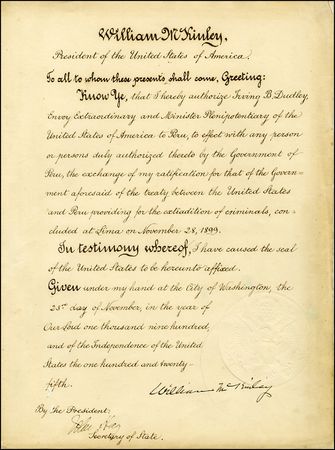 William McKinley,
President of the United States of America.
To all to whom these presents shall come, Greeting:
Know Ye, that I hereby authorize Irving B. Dudley,
Envoy Extraordinary and Minister Plenipotentiary of the
United States of America to Peru, to effect with any person
or persons duly authorized thereto by the Government of
Peru, the exchange of my ratification for that of the Govern-
ment aforesaid of the treaty between the United States
and Peru providing for the extradition of criminals, con-
cluded at Lima on November 28, 1899.
In testimony whereof, I have caused the seal
of the United States to be hereunto affixed.
Given under my hand at the City of Washington, the
23rd day of November, in the year of
Our Lord one thousand nine hundred,
and of the Independence of the United
States the one hundred and twenty-
fifth.
William McKinley
By the President:
John Hay
Secretary of State.